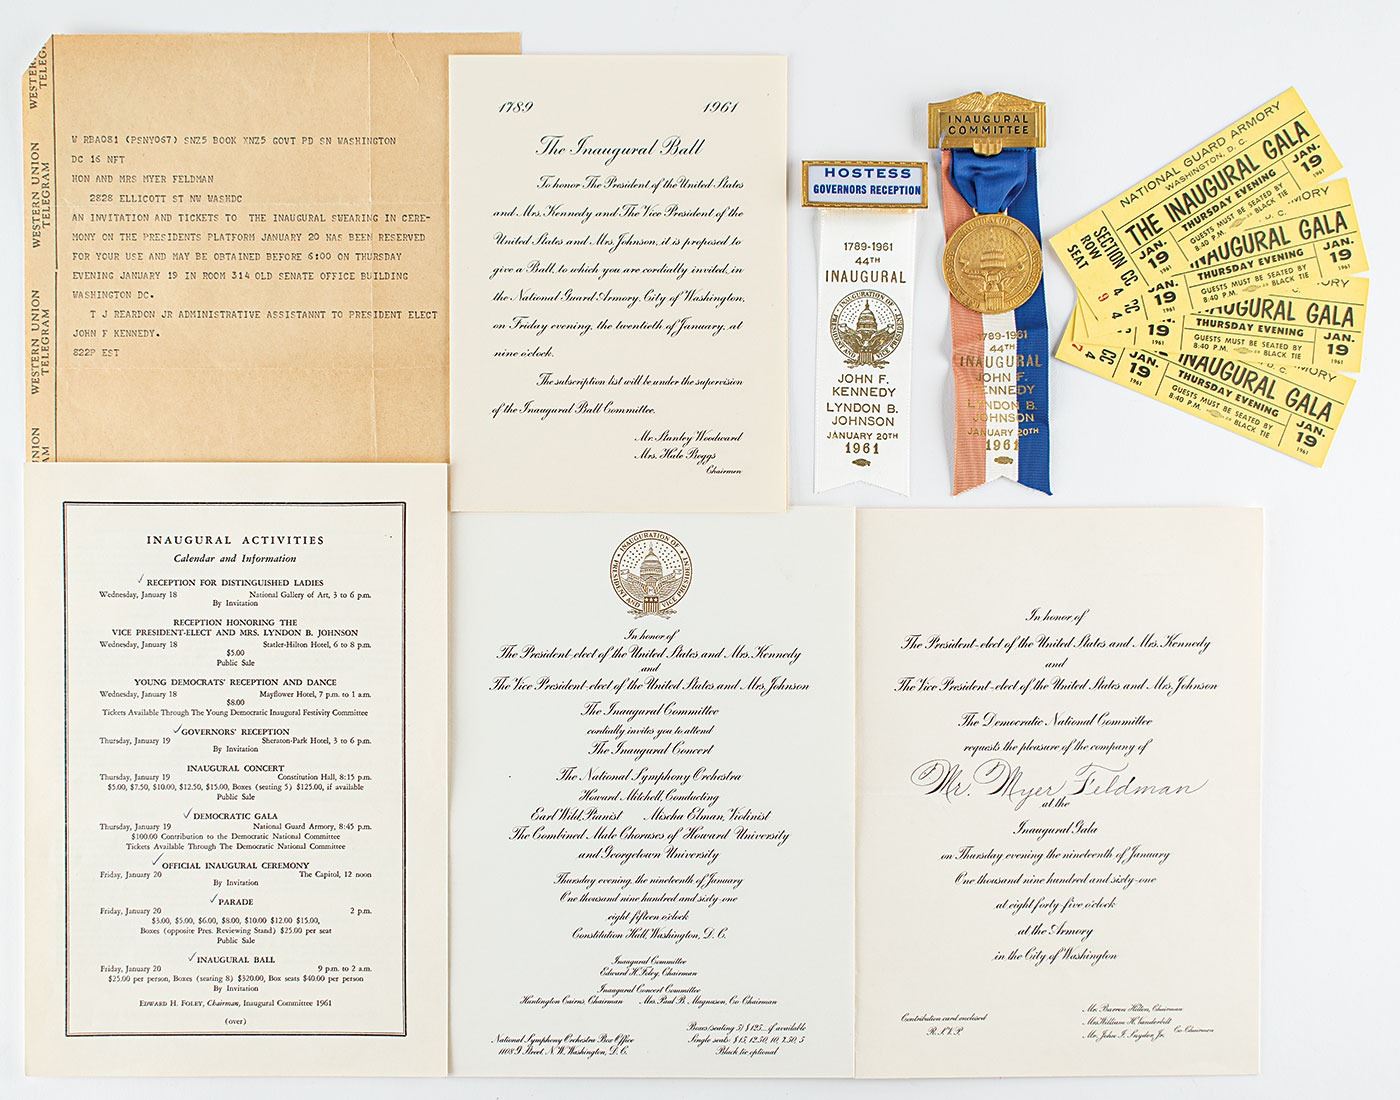 WESTERN UNION
TELEGRAM
WESTERN UNION
TELEGRAM
W RBA081 (PSNY067) SNZ5 BOOK XNZ5 GOVT PD SN WASHINGTON
DC 16 NFT
HON AND MRS MYER FELDMAN
2828 ELLICOTT ST NW WASHDC
AN INVITATION AND TICKETS TO THE INAUGURAL SWEARING IN CERE-
MONY ON THE PRESIDENTS PLATFORM JANUARY 20 HAS BEEN RESERVED
FOR YOUR USE AND MAY BE OBTAINED BEFORE 6:00 ON THURSDAY
EVENING JANUARY 19 IN ROOM 314 OLD SENATE OFFICE BUILDING
WASHINGTON DC.
T J REARDON JR ADMINISTRATIVE ASSISTANNT TO PRESIDENT ELECT
JOHN F KENNEDY.
822P EST
1789 1961
The Inaugural Ball
To honor The President of the United States
and Mrs. Kennedy and The Vice President of the
United States and Mrs. Johnson, it is proposed to
give a Ball, to which you are cordially invited, in
the National Guard Armory, City of Washington,
on Friday evening, the twentieth of January, at
nine o'clock.
The subscription list will be under the supervision
of the Inaugural Ball Committee.
Mr. Stanley Woodward
Mrs. Hale Boggs
Chairmen
HOSTESS
GOVERNORS RECEPTION
1789-1961
44TH
INAUGURAL
INAUGURATION OF
PRESIDENT AND VICE PRESIDENT
JOHN F.
KENNEDY
LYNDON B.
JOHNSON
JANUARY 20TH
1961
INAUGURAL
COMMITTEE
1789-1961
44TH
INAUGURAL
JOHN F.
KENNEDY
LYNDON B.
JOHNSON
JANUARY 20TH
1961
NATIONAL GUARD ARMORY
WASHINGTON, D. C.
THE INAUGURAL GALA
THURSDAY EVENING
GUESTS MUST BE SEATED BY
8:40 P.M. BLACK TIE
JAN.
19
1961
JAN.
19
SECTION CC
ROW 4
SEAT 9
INAUGURAL GALA
THURSDAY EVENING
GUESTS MUST BE SEATED BY
8:40 P.M. BLACK TIE
JAN.
19
1961
JAN.
19
1961
INAUGURAL GALA
THURSDAY EVENING
GUESTS MUST BE SEATED BY
8:40 P.M. BLACK TIE
JAN.
19
1961
19
1961
INAUGURAL GALA
THURSDAY EVENING
GUESTS MUST BE SEATED BY
8:40 P.M. BLACK TIE
JAN.
19
1961
JAN.
19
1961
CC
4
7
INAUGURAL ACTIVITIES
Calendar and Information
RECEPTION FOR DISTINGUISHED LADIES
Wednesday, January 18 National Gallery of Art, 3 to 6 p.m.
By Invitation
RECEPTION HONORING THE
VICE PRESIDENT-ELECT AND MRS. LYNDON B. JOHNSON
Wednesday, January 18 Statler-Hilton Hotel, 6 to 8 p.m.
$5.00
Public Sale
YOUNG DEMOCRATS' RECEPTION AND DANCE
Wednesday, January 18 Mayflower Hotel, 7 p.m. to 1 a.m.
$8.00
Tickets Available Through The Young Democratic Inaugural Festivity Committee
GOVERNORS' RECEPTION
Thursday, January 19 Sheraton-Park Hotel, 3 to 6 p.m.
By Invitation
INAUGURAL CONCERT
Thursday, January 19 Constitution Hall, 8:15 p.m.
$5.00, $7.50, $10.00, $12.50, $15.00, Boxes (seating 5) $125.00, if available
Public Sale
DEMOCRATIC GALA
Thursday, January 19 National Guard Armory, 8:45 p.m.
$100.00 Contribution to the Democratic National Committee
Tickets Available Through The Democratic National Committee
OFFICIAL INAUGURAL CEREMONY
Friday, January 20 The Capitol, 12 noon
By Invitation
PARADE
Friday, January 20 2 p.m.
$3.00, $5.00, $6.00, $8.00, $10.00 $12.00 $15.00,
Boxes (opposite Pres. Reviewing Stand) $25.00 per seat
Public Sale
INAUGURAL BALL
Friday, January 20 9 p.m. to 2 a.m.
$25.00 per person, Boxes (seating 8) $320.00, Box seats $40.00 per person
By Invitation
EDWARD H. FOLEY, Chairman, Inaugural Committee 1961
(over)
INAUGURATION OF
PRESIDENT AND VICE PRESIDENT
In honor of
The President-elect of the United States and Mrs. Kennedy
and
The Vice President-elect of the United States and Mrs. Johnson
The Inaugural Committee
cordially invites you to attend
The Inaugural Concert
The National Symphony Orchestra
Howard Mitchell, Conducting
Earl Wild, Pianist Mischa Elman, Violinist
The Combined Male Choruses of Howard University
and Georgetown University
Thursday evening, the nineteenth of January
One thousand nine hundred and sixty-one
eight fifteen o'clock
Constitution Hall, Washington, D. C.
Inaugural Committee
Edward H. Foley, Chairman
Inaugural Concert Committee
Huntington Cairns, Chairman Mrs. Paul B. Magnuson, Co-Chairman
National Symphony Orchestra Box Office
1108 G Street, N.W. Washington, D. C.
Boxes (seating 5) $125. if available
Single seats: $15, 12.50, 10, 7.50, 5
Black tie optional
In honor of
The President-elect of the United States and Mrs. Kennedy
and
The Vice President-elect of the United States and Mrs. Johnson
The Democratic National Committee
requests the pleasure of the company of
Mr. Myer Feldman
at the
Inaugural Gala
on Thursday evening the nineteenth of January
One thousand nine hundred and sixty-one
at eight forty-five o'clock
at the Armory
in the City of Washington
Contribution card enclosed
R.S.V.P.
Mr. Barron Hilton, Chairman
Mrs. William H. Vanderbilt
Mr. John I. Snyder, Jr.
Co-Chairmen